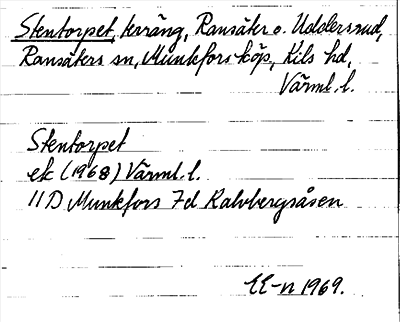 Stentorpet, terräng, Ransäter o. Uddersrud,
Ransäters sn, Munkfors köp, Kils hd,
Värml. l.
Stentorpet
ek (1968) Värml. l.
11D Munkfors 7d Kalvbergsåsen
EE-n 1969.